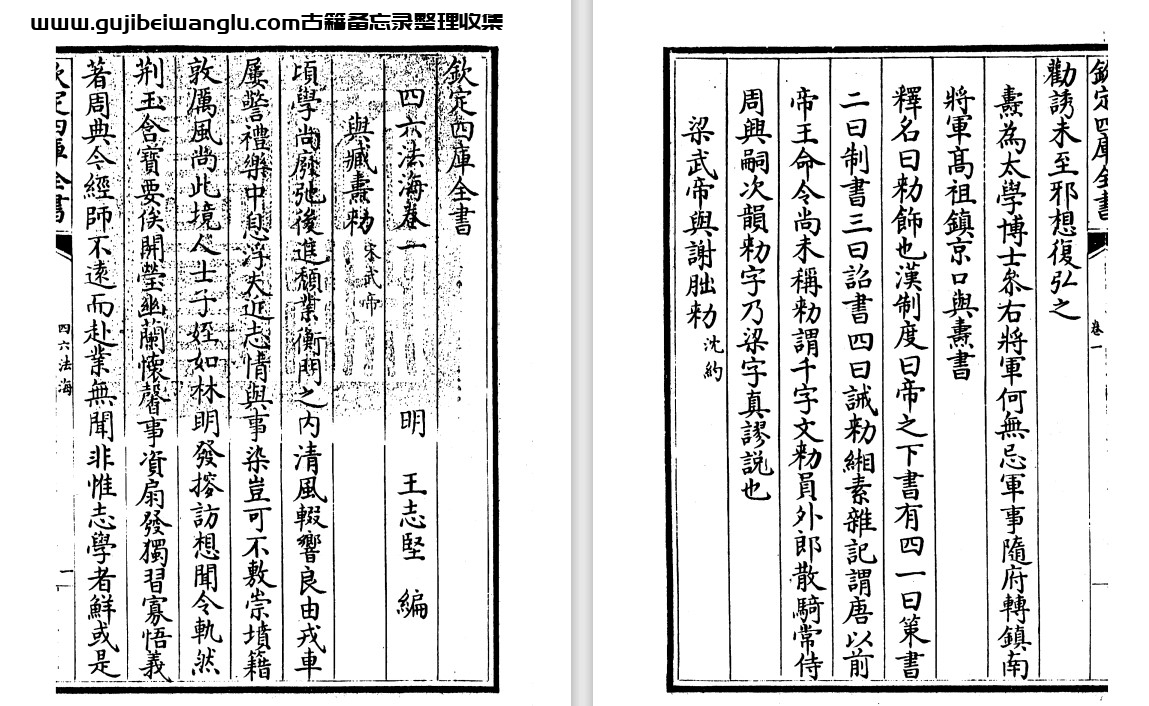 www.gujibeiwanglu.com古籍备忘录整理收集
欽定四庫全書
四六法海卷一 明 王志堅 編
與臧燾勑 宋武帝
頃學尚廢弛後進頹業衡門之內清風輟響良由戎車
屢警禮樂中息浮夫近志情與事染豈可不敷崇墳籍
敦厲風尚此境人士子姪如林明發搜訪想聞令軌然
荆玉含寶要俟開瑩幽蘭懷馨事資扇發獨習寡悟義
著周典今經師不遠而赴業無聞非惟志學者鮮或是
欽定四庫全書 四六法海 一
欽定四庫全書 卷一
勸誘未至邪想復弘之
燾為太學博士叅右將軍何無忌軍事隨府轉鎮南
將軍髙祖鎮京口與燾書
釋名曰勑飾也漢制度曰帝之下書有四一曰策書
二曰制書三曰詔書四曰誡勑緗素雜記謂唐以前
帝王命令尚未稱勑謂千字文勑員外郎散騎常侍
周興嗣次韻勑字乃梁字真謬說也
梁武帝與謝朏勑 沈約